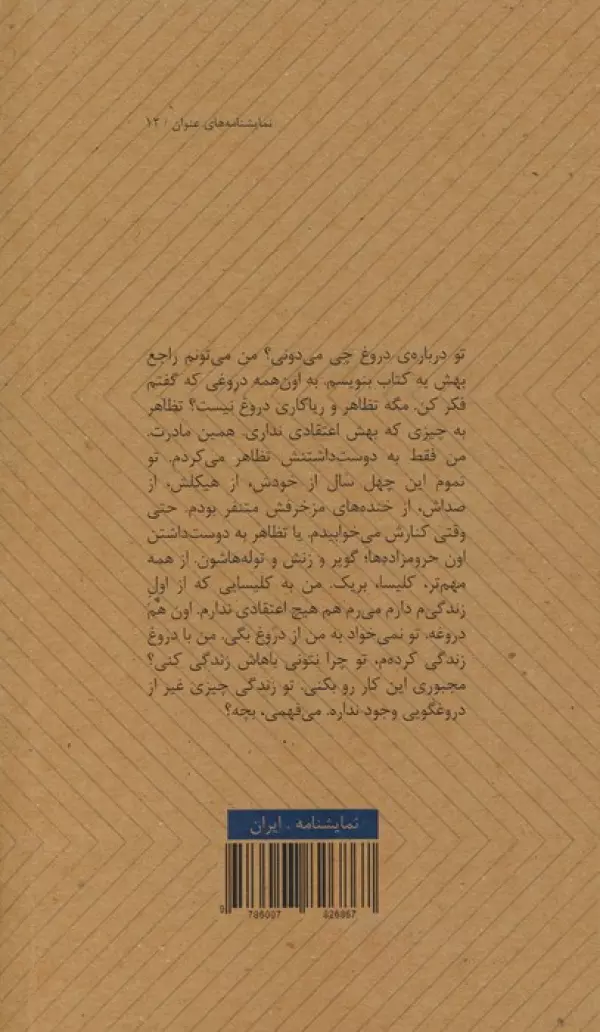 نمایشنامه‌های عنوان : ۱۲
تو درباره‌ی دروغ چی می‌دونی؟ من می‌تونم راجع
بهش یه کتاب بنویسم. به اون‌همه دروغی که گفتم
فکر کن. مگه تظاهر و ریاکاری دروغ نیست؟ تظاهر
به چیزی که بهش اعتقادی نداری. همین مادرت.
من فقط به دوست‌داشتنش تظاهر می‌کردم. تو
تموم این چهل سال از خودش، از هیکلش، از
صداش، از خنده‌های مزخرفش متنفر بودم. حتی
وقتی کنارش می‌خوابیدم. یا تظاهر به دوست‌داشتن
اون حرومزاده‌ها؛ گوپر و زنش و توله‌هاشون. از همه
مهم‌تر، کلیسا، بریک. من به کلیسایی که از اولِ
زندگی‌م دارم می‌رم هم هیچ اعتقادی ندارم. اون هم
دروغه. تو نمی‌خواد به من از دروغ بگی. من با دروغ
زندگی کرده‌م، تو چرا نتونی باهاش زندگی کنی؟
مجبوری این کار رو بکنی. تو زندگی چیزی غیر از
دروغگویی وجود نداره. می‌فهمی، بچه؟
نمایشنامه . ایران
9 786007 826867